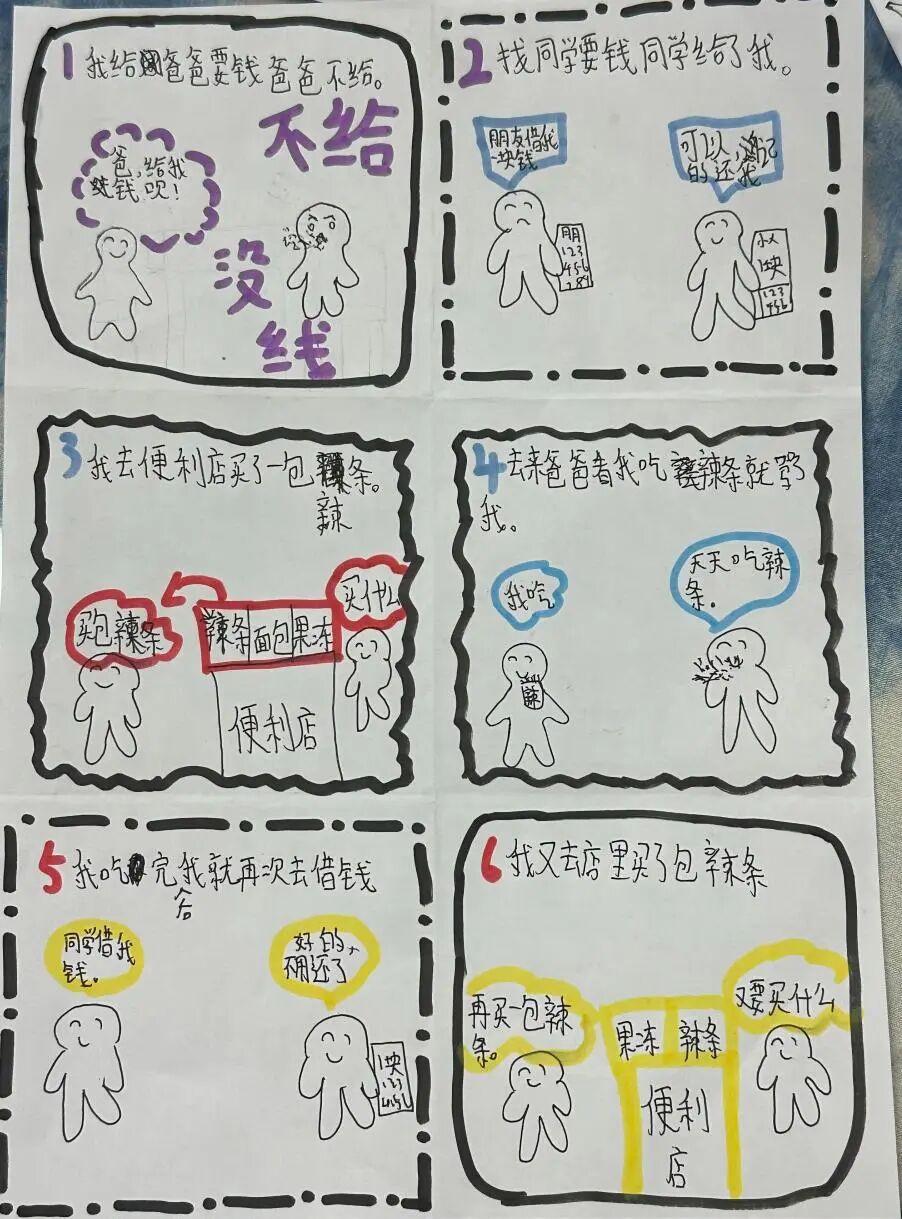 1 我给爸爸要钱爸爸不给。
爸,给我
钱呗!
不给
没
线
2 找同学要钱同学给了我。
朋友借我
一块钱
可以,记
的还我
朋
123
456
789
1块
123
456
3 我去便利店买了一包条。
辣
买包辣条
辣条 面包 果冻
买什么
便利店
4 去来爸爸看我吃辣条就了
我。
我吃
辣
天天吃辣
条。
5 我吃完我就再次去借钱
合
同学借我
钱。
好的,
不用还了
1块
6 我又去店里买了包辣条
再买一包辣
条。
果冻 辣条
又要买什么
便利
店